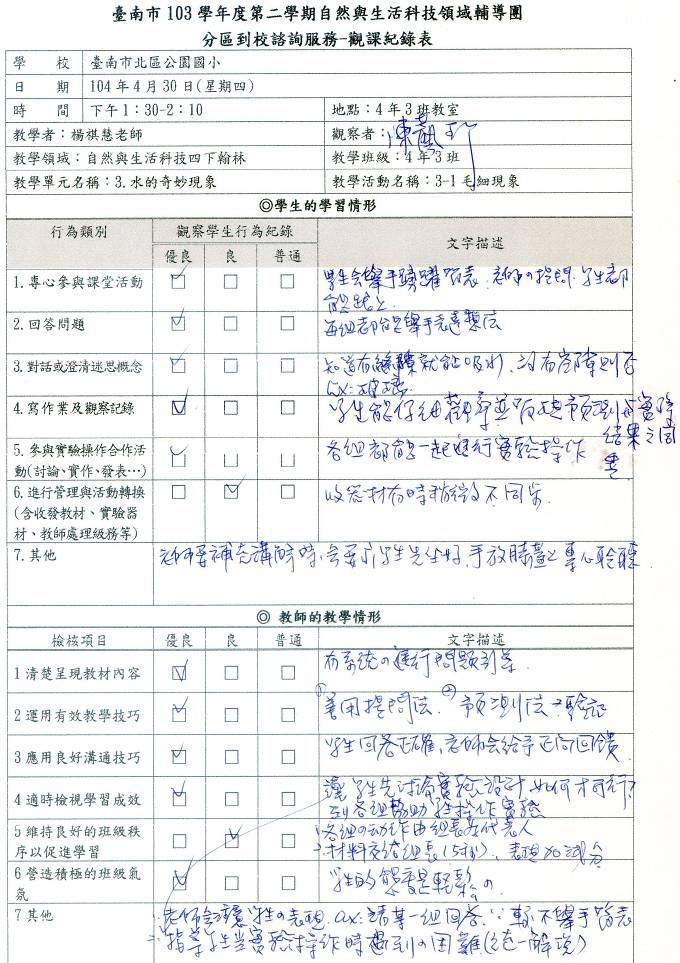 臺南市 103 學年度第二學期自然與生活科技領域輔導團
分區到校諮詢服務-觀課紀錄表
學 校 臺南市北區公園國小
日 期 104 年 4 月 30 日(星期四)
時 間 下午 1:30-2:10 地點:4 年 3 班教室
教學者:楊祺慧老師 觀察者:陳
教學領域:自然與生活科技四下翰林 教學班級:4 年 3 班
教學單元名稱:3.水的奇妙現象 教學活動名稱:3-1 毛細現象
◎學生的學習情形
行為類別 觀察學生行為紀錄 文字描述
優良 良 普通
1.專心參與課堂活動 學生會舉手踴躍發表.老師の提問.學生都
能跟上.
2.回答問題 每組都能舉手表達想法
3.對話或澄清迷思概念 知道有縫隙就能吸水、沒有空隙則否
ex:玻璃
4.寫作業及觀察記錄 學生能仔細觀察並預測與實際
結果之間
5.參與實驗操作合作活
動(討論、實作、發表…) 各組都能一起進行實驗操作
6.進行管理與活動轉換
(含收發教材、實驗器
材、教師處理級務等) 收器材有時稍微の不同步.
7.其他 老師要補充講解時,會要求學生先坐好,手放膝蓋上專心聆聽.
◎ 教師的教學情形
檢核項目 優良 良 普通 文字描述
1 清楚呈現教材內容 有系統の進行問題引導.
2 運用有效教學技巧 ①善用提問法. ②預測法→驗証
3 應用良好溝通技巧 學生回答正確,老師會給予正向回饋.
4 適時檢視學習成效 讓學生先討論實驗設計,如何才可行?
到各組協助 操作實驗
5 維持良好的班級秩
序以促進學習 各組の動作由組長在代表人
材料交給組長(5秒). 表現加減分
6 營造積極的班級氣
氛 學生的態度是輕鬆の.
7 其他 老師會 學生の表現.ex:請某一組回答 不舉手發表
指導學生當實驗操作時遇到の困難(統一解說)